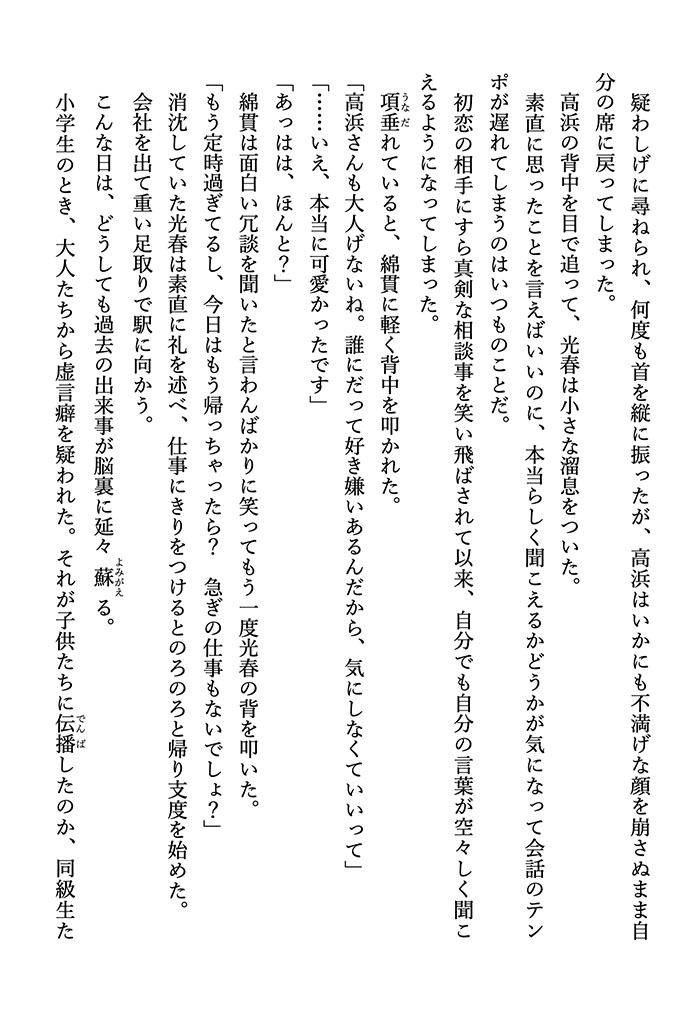 疑わしげに尋ねられ、何度も首を縦に振ったが、高浜はいかにも不満げな顔を崩さぬまま自
分の席に戻ってしまった。
高浜の背中を目で追って、光春は小さな溜息をついた。
素直に思ったことを言えばいいのに、本当らしく聞こえるかどうかが気になって会話のテン
ポが遅れてしまうのはいつものことだ。
初恋の相手にすら真剣な相談事を笑い飛ばされて以来、自分でも自分の言葉が空々しく聞こ
えるようになってしまった。
項垂れていると、綿貫に軽く背中を叩かれた。
うなだ
「高浜さんも大人げないね。誰にだって好き嫌いあるんだから、気にしなくていいって」
「……いえ、本当に可愛かったです」
「あっはは、ほんと？」
綿貫は面白い冗談を聞いたと言わんばかりに笑ってもう一度光春の背を叩いた。
「もう定時過ぎてるし、今日はもう帰っちゃったら？　急ぎの仕事もないでしょ？」
消沈していた光春は素直に礼を述べ、仕事にきりをつけるとのろのろと帰り支度を始めた。
会社を出て重い足取りで駅に向かう。
こんな日は、どうしても過去の出来事が脳裏に延々蘇る。
よみがえ
小学生のとき、大人たちから虚言癖を疑われた。それが子供たちに伝播したのか、同級生た
でんぱ